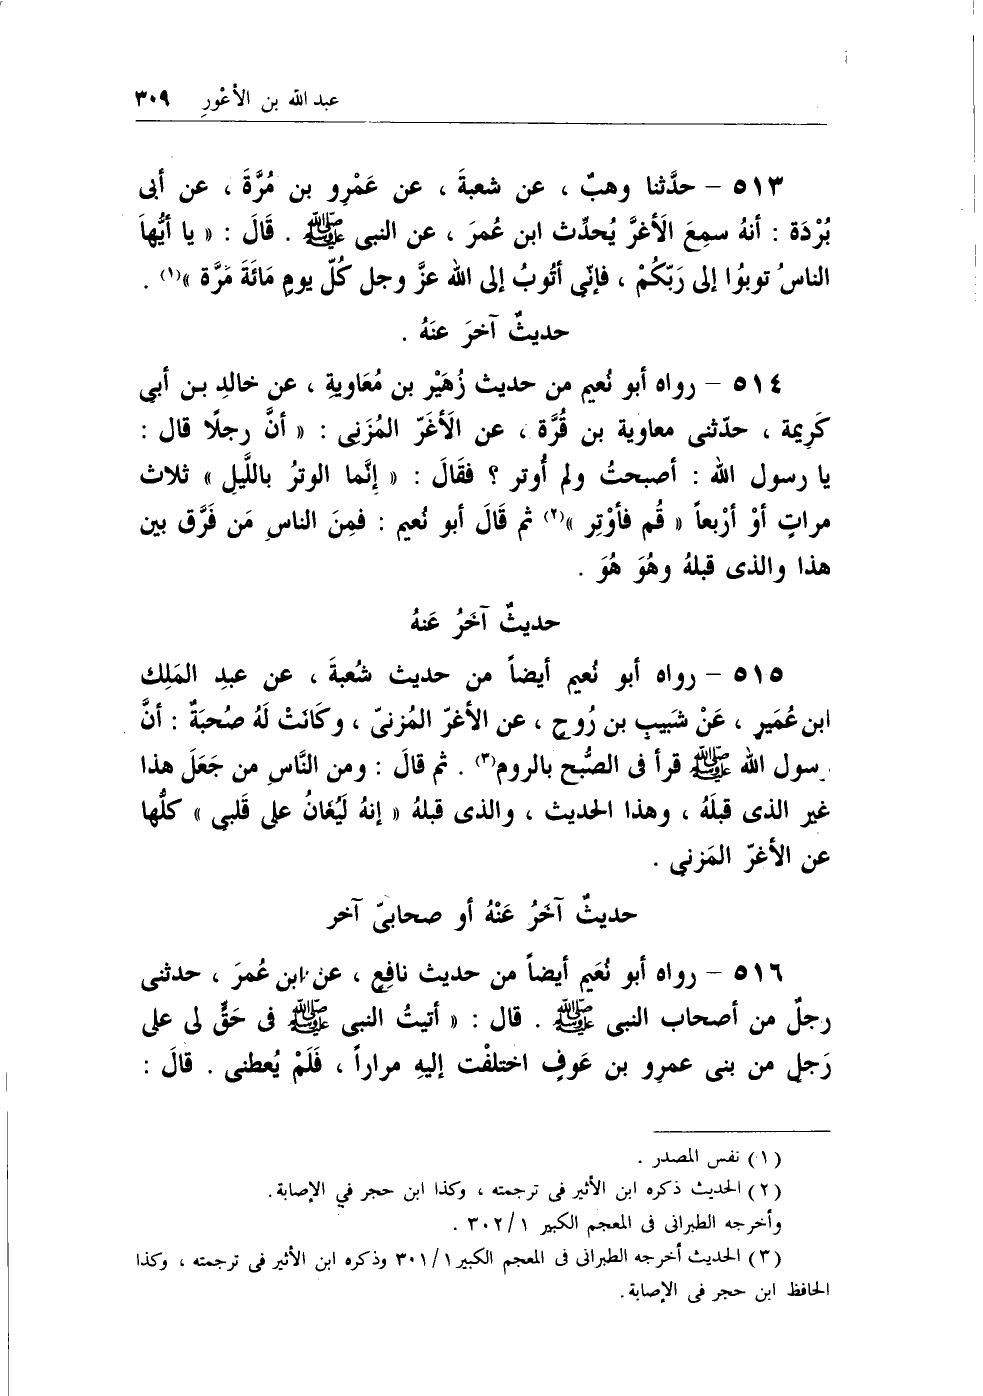 عبد الله بن الأعْورِ ٣٠٩
٥١٣ – حدَّثنا وهبٌ ، عن شعبةَ ، عن عَمْرِو بن مُرَّةَ ، عن أبى
بُرْدَة : أنهُ سمِعَ الَأغرَّ يُحدِّث ابن عُمرَ ، عن النبى ﷺ . قَالَ : « يا أيُّهاَ
الناسُ توبُوا إلى رَبّكُمْ ، فإنّي أتُوبُ إلى الله عزَّ وجل كُلّ يومٍ مَائَةَ مَرَّة »(١) .
حديثٌ آخرَ عنَهُ .
٥١٤ – رواه أبو نُعيم من حديث زُهَيْر بن مُعَاويةِ ، عن خالدِ بن أبي
كَرِيمة ، حدّثنى معاوية بن قُرَّة ، عن الَأغَرّ المُزَنِى : « أنَّ رجلًا قال :
يا رسول الله : أصبحتُ ولم أُوتر ؟ فقَالَ : « إنَّما الوترُ باللَّيلِ » ثلاث
مراتٍ أوْ أرْبعاً « قُم فأوْتِر »(٢) ثم قَالَ أبو نُعيم : فمِنَ الناسِ مَن فَرَّق بين
هذا والذى قبلهُ وهُوَ هُوَ .
حديثٌ آخَرُ عَنهُ
٥١٥ – رواه أبو نُعيم أيضاً من حديث شُعبةَ ، عن عبدِ المَلِك
ابن عُمَيرٍ ، عَنْ شَبيبِ بن رُوحٍ ، عن الأغرّ المُزنىّ ، وكَانَتْ لَهُ صُحبَةٌ : أنَّ
رسول الله ﷺ قرأ فى الصُّبح بالروم(٣) . ثم قالَ : ومن النَّاسِ من جَعَلَ هذا
غير الذى قبلَهُ ، وهذا الحديث ، والذى قبلهُ « إنهُ لَيُغَانُ على قَلبى » كلُّها
عن الأغرّ المَزنى .
حديثٌ آخَرُ عَنْهُ أو صحابىّ آخر
٥١٦ – رواه أبو نُعَيم أيضاً من حديث نافِعٍ ، عن ابن عُمرَ ، حدثنى
رجلٌ من أصحاب النبى ﷺ . قال : « أتيتُ النبى ﷺ فى حَقٍّ لى على
رَجلٍ من بنى عمرِو بن عَوفٍ اختلفْت إليهِ مراراً ، فَلَمْ يُعطنى . قالَ :
(١) نفس المصدر .
(٢) الحديث ذكره ابن الأثير فى ترجمته ، وكذا ابن حجر في الإصابة .
وأخرجه الطبرانى فى المعجم الكبير ٣٠٢/١ .
(٣) الحديث أخرجه الطبرانى فى المعجم الكبير ٣٠١/١ وذكره ابن الأثير فى ترجمته ، وكذا
الحافظ ابن حجر فى الإصابة .